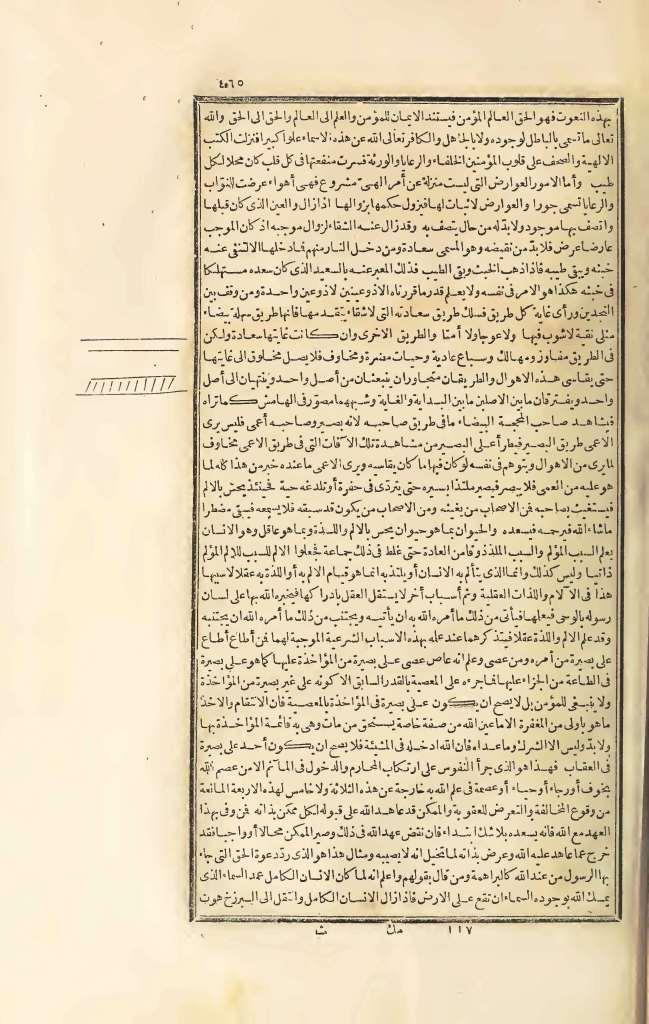 ٤٥٦٥
بهذه النعوت فهو الحق العالم المؤمن فيستند الايمان للمؤمن والعلم الى العالم والحق الى الحق والله
تعالى ما تسمى بالباطل لوجوده ولا بالجاهل والكافر تعالى الله عن هذه الاسماء علوا كبيرا فنزلت الكتب
الالهية والصحف على قلوب المؤمنين الخلفاء والرعايا والورثة فسرت منفعتها فى كل قلب كان محلا لكل
طيب وأما الامور العوارض التى ليست منزلة عن أمر الهى مشروع فهى أهواء عرضت للنوّاب
والرعايا تسمى جورا والعوارض لا ثبات لها فيزول حكمها بزوالها اذا زال والعين الذى كان قبلها
واتصف بها موجود ولا بدّ له من حال يتصف به وقد زال عنه الشقاء لزوال موجبه اذ كان الموجب
عارضا عرض فلا بدّ من نقيضه وهو المسمى سعادة ومن دخل النار منهم فما دخلها الا لتنفى عنه
خبثه ويبقى طيبه فاذا ذهب الخبث وبقى الطيب فذلك المعبر عنه بالسعيد الذى كان سعده مستهلكا
فى خبثه هكذا هو الامر فى نفسه ولا يعلم قدر ما قررناه الا ذو عينين لا ذو عين واحدة ومن وقف بين
النجدين ورأى غاية كل طريق فسلك طريق سعادته التى لا شقاء يتقدّمها فانها طريق سهلة بيضاء
مثلى نقية لا شوب فيها ولا عوجا ولا أمتا والطريق الاخرى وان كانت غايتها سعادة ولكن
فى الطريق مفاوز ومهالك وسباع عادية وحيات مضرة ومخاوف فلا يصل مخلوق الى غايتها
حتى يقاسى هذه الاهوال والطريقان متجاوران ينبعثان من أصل واحد وينتهيان الى أصل
واحد ويفترقان ما بين الاصلين ما بين البداية والغاية وشبههما مصوّر فى الهامش كما تراه
فيشاهد صاحب المحجمة البيضاء ما فى طريق صاحبه لانه بصير وصاحبه أعمى فليس يرى
الاعمى طريق البصير فيطرأ على البصير من مشاهدة تلك الآفات التى فى طريق الاعمى مخاوف
لما رى من الاهوال ويتوهم فى نفسه لو كان فيها ما كان يقاسيه ويرى الاعمى ما عنده خبر من هذا كله لما
هو عليه من العمى فلا يبصر فيصير ملتذا بسيره حتى يتردّى فى حفرة أو تلدغه حية فحينئذ يحس بالالم
فيستغيث بصاحبه فمن الاصحاب من يغيثه ومن الاصحاب من يكون قد سبقه فلا يسمعه فيبقى مضطرا
ما شاء الله فيرحمه فيسعده والحيوان بما هو حيوان يحس بالالم واللذة وبما هو عاقل وهو الانسان
يعلم السبب المؤلم والسبب الملذ ذوقا من العادة حتى غلط فى ذلك جماعة فجعلوا الالم للسبب للالم المؤلم
ذاتيا وليس كذلك وانما الذى يتألم به الانسان أو يلتذ به انما هو قيام الالم به أو اللذة به عقلا لا سببها
هذا فى الآلام واللذات العقلية وثم أسباب أخر لا يستقل العقل بادراكها فيخبره الله بها على لسان
رسوله بالوحى فيعلمها فيأتى من ذلك ما أمره الله به ان يأتيه ويجتنب من ذلك ما أمره الله ان يجتنبه
وقد علم الالم واللذة عقلا فيتذكرهما عند علمه بهذه الاسباب الشرعية الموجبة لهما فمن أطاع أطاع
على بصيرة من أمره ومن عصى وعلم انه عاص عصى على بصيرة من المؤاخذة عليها كما هو على بصيرة
فى الطاعة من الجزاء عليها فما جرّءه على المعصية بالقدر السابق الا كونه على غير بصيرة من المؤاخذة
ولا ينبغى للمؤمن بل لا يصح ان يكون على بصيرة فى المؤاخذة بالمعصية فان الانتقام والاخذ
ما هو باولى من المغفرة الا ما عين الله من صفة خاصة يستحق من مات وهى به قائمة المؤاخذة بها
ولا بدّ وليس الا الشرك وما عداه فان الله ادخله فى المشيئة فلا يصح ان يكون أحد على بصيرة
فى العقاب فهذا هو الذى جرّأ النفوس على ارتكاب المحارم والدخول فى المآثم الا من عصم الله
بخوف أو رجاء أو حياء أو عصمة فى علم الله به خارجة عن هذه الثلاثة ولا خامس لهذه الاربعة المانعة
من وقوع المخالفة والتعرض للعقوبة والممكن قد عاهد الله على قبوله لكل ممكن بذاته فمن وفى بهذا
العهد مع الله فانه يسعده بلا شك ابتداء فان نقض عهد الله فى ذلك وصير الممكن محالا أو واجبا فقد
خرج عما عاهد عليه الله وعرض بذاته لما تخيل انه لا يصيبه ومثال هذا هو الذى ردّ دعوة الحق التى جاء
بها الرسول من عند الله كالبراهمة ومن قال بقولهم واعلم انه لما كان الانسان الكامل عمد السماء الذى
يمسك الله بوجوده السماء ان تقع على الارض فاذا زال الانسان الكامل وانتقل الى البرزخ هوت
١١٧ مك ثا